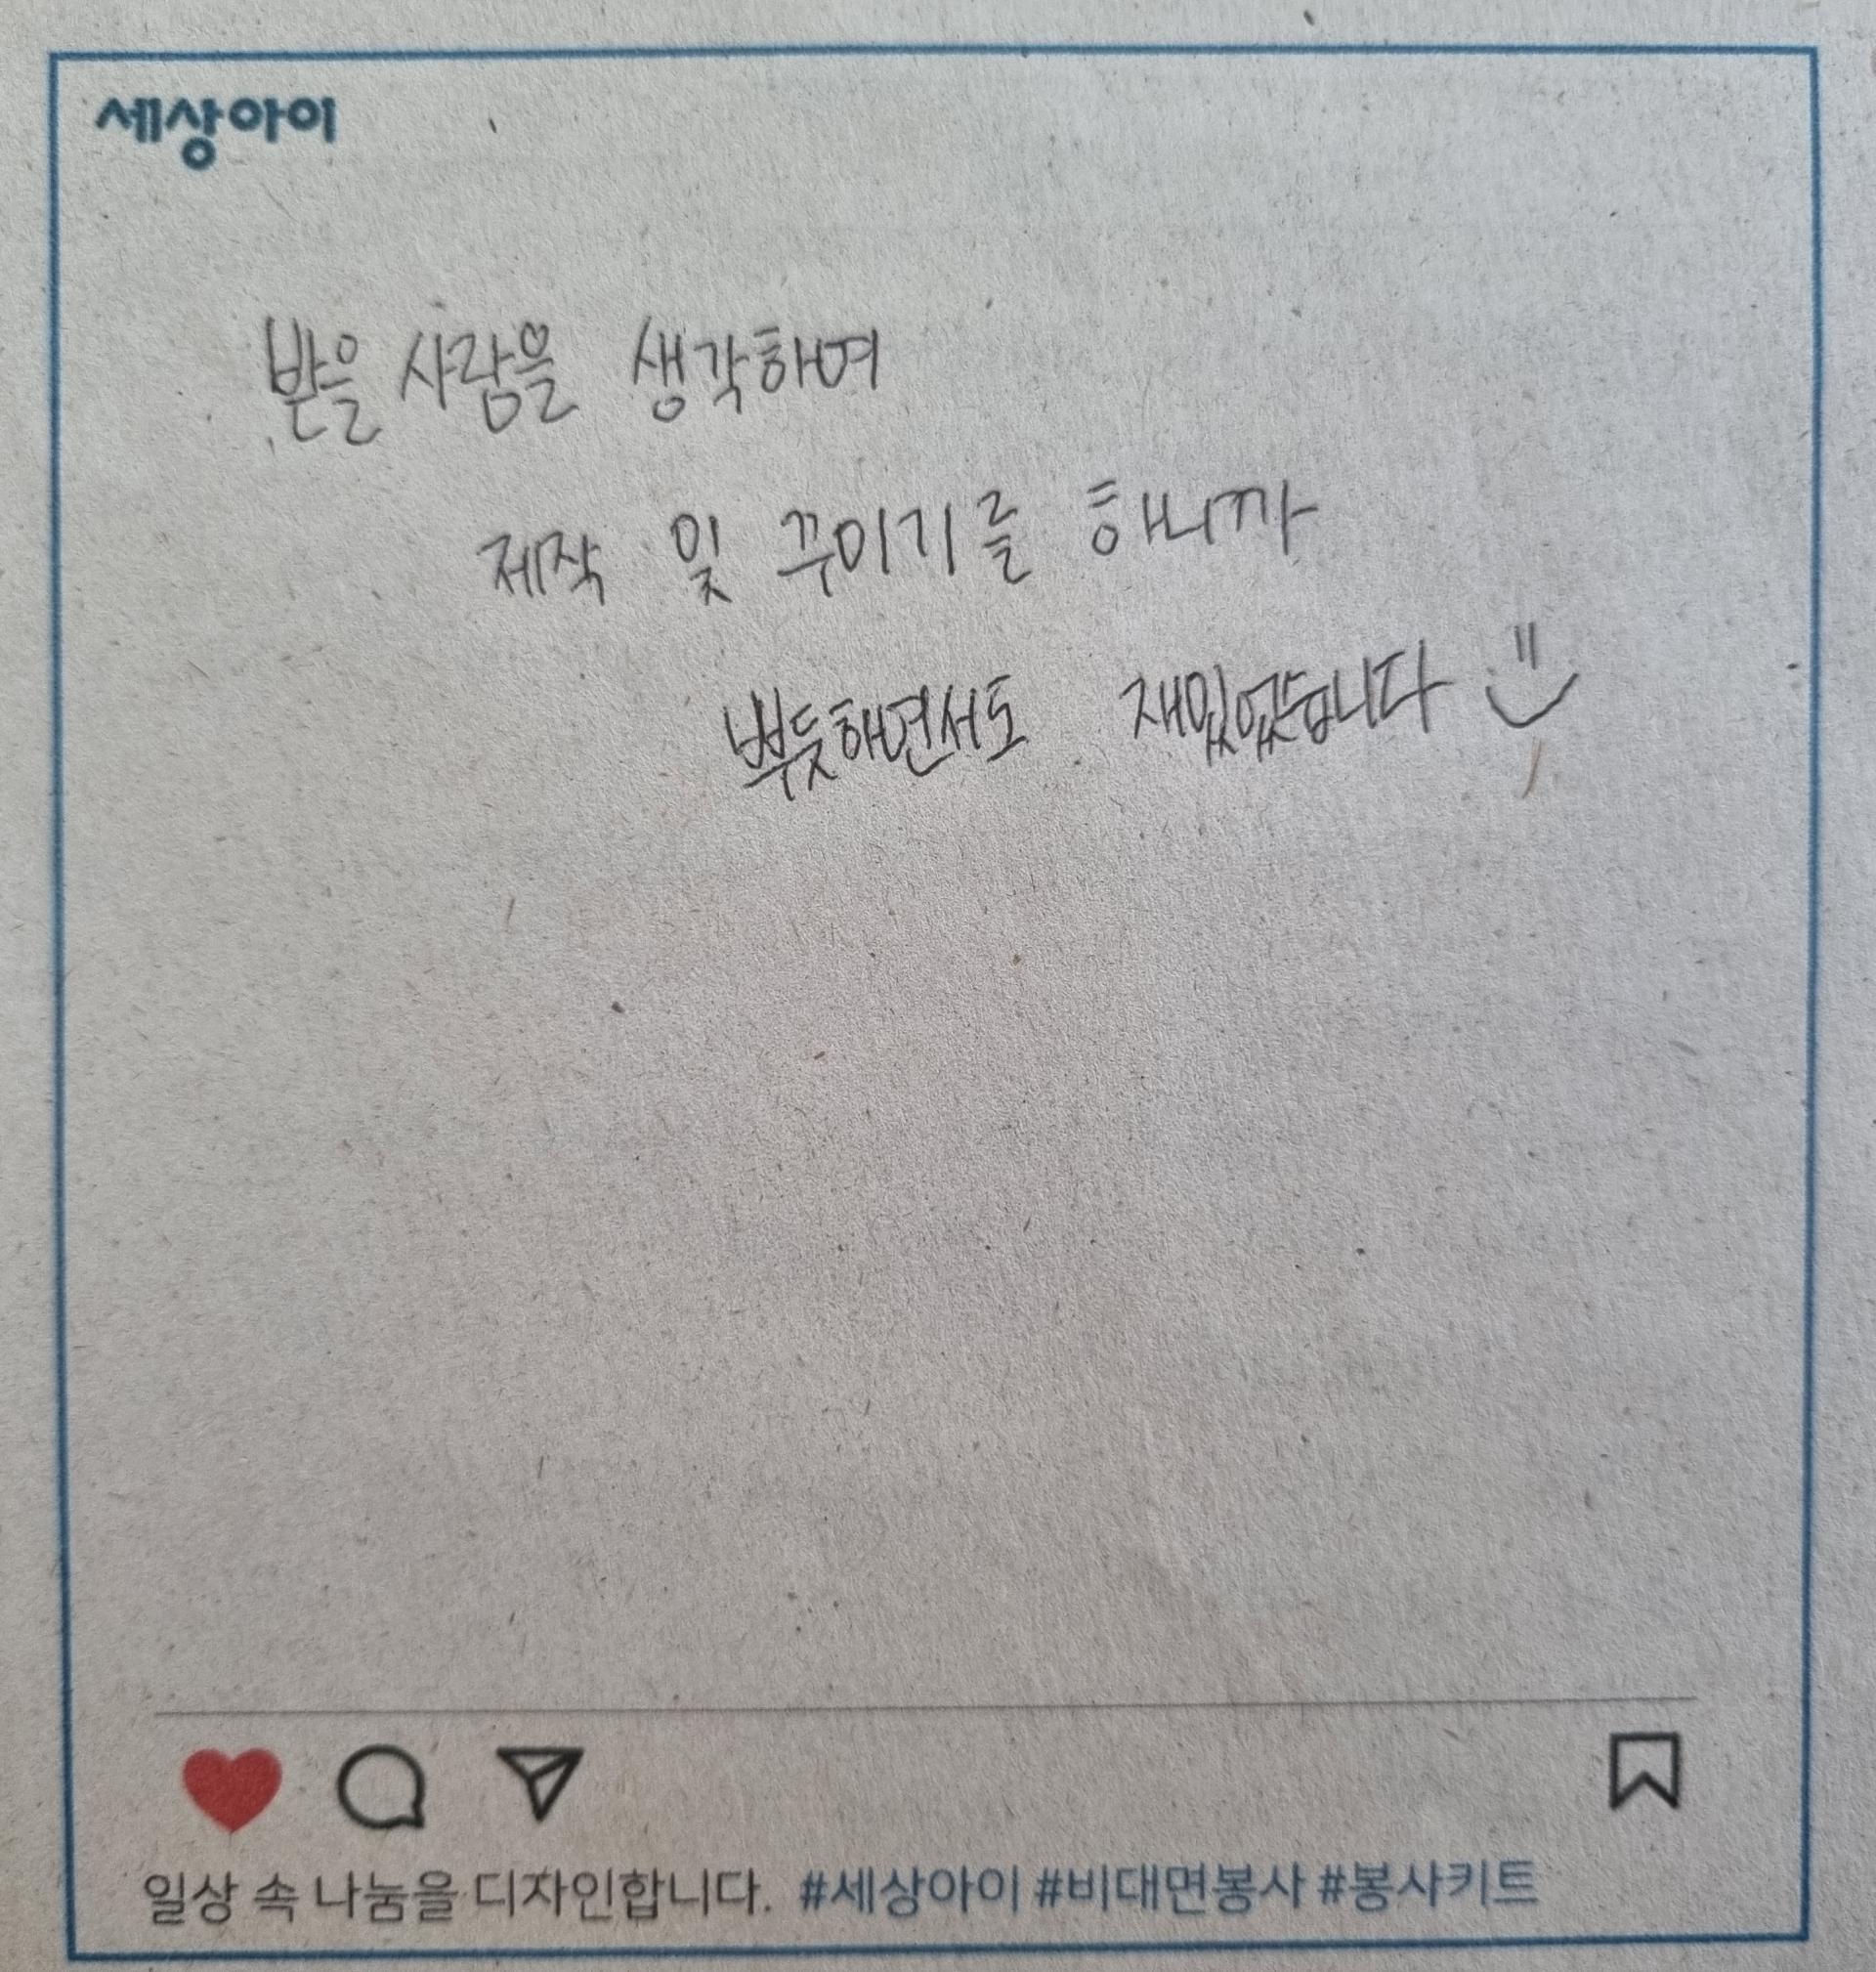 세상아이
받을 사람을 생각하여
제작 및 꾸미기를 하니까
뿌듯하면서도 재밌었습니다
일상 속 나눔을 디자인합니다. #세상아이 #비대면봉사 #봉사키트